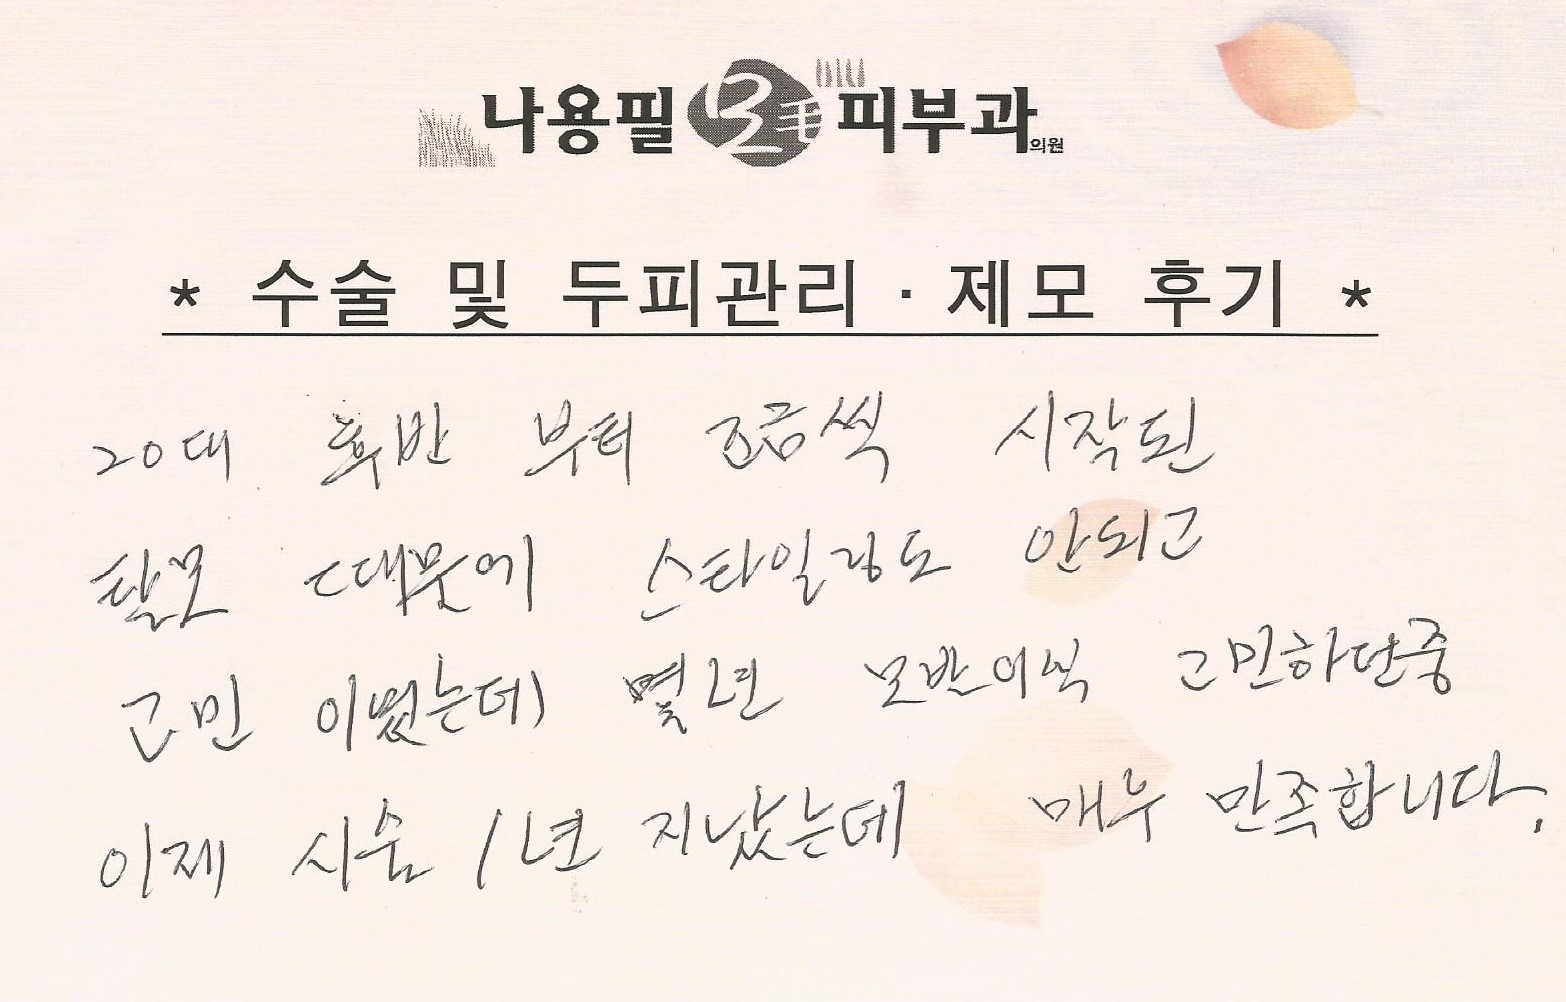 나용필 모毛 피부과의원
* 수술 및 두피관리 · 제모 후기 *
20대 후반 부터 조금씩 시작된
탈모 때문에 스타일링도 안되고
고민 이였는데 몇년 모발이식 고민하던중
이제 시술 1년 지났는데 매우 만족합니다.